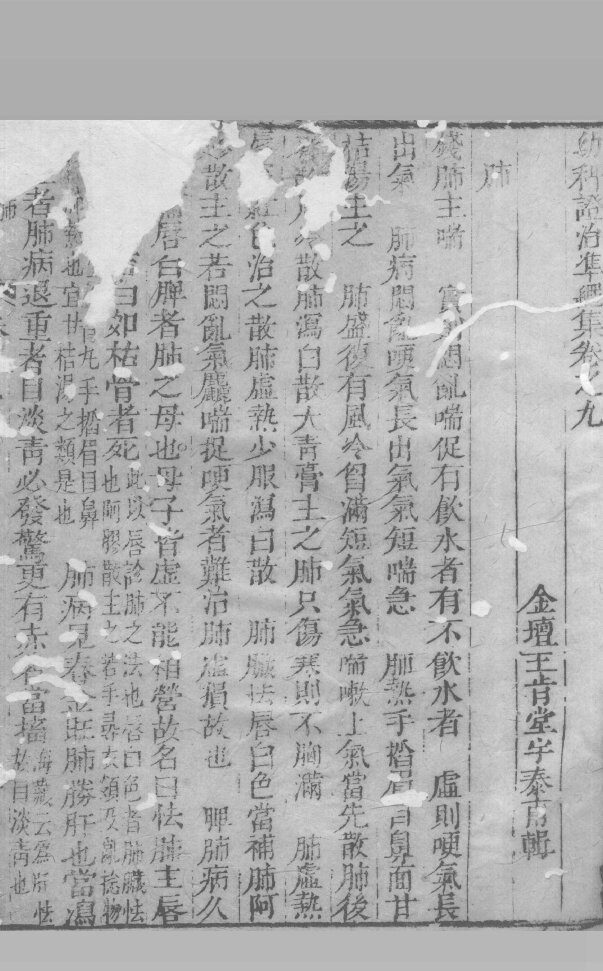 幼科證治準繩集卷之九
金壇王肯堂宇泰甫輯
肺
錢肺主喘 實則悶亂喘促有飲水者有不飲水者 虛則哽氣長
出氣 肺病悶亂哽氣長出氣氣短喘急 肺熱手掐眉目鼻面甘
桔湯主之 肺盛復有風冷胷滿短氣氣急喘嗽上氣當先散肺後
散肺瀉白散大青膏主之肺只傷寒則不胸滿 肺虛熱
色治之散肺虛熱少服瀉白散 肺臟怯唇白色當補肺阿
散主之若悶亂氣麤喘促哽氣者難治肺虛損故也 脾肺病久
唇白脾者肺之母也母子皆虛不能相營故名曰怯肺主唇
白如枯骨者死 此以唇診肺之法也唇白色者肺臟怯
也阿膠散主之若手尋衣領及亂捻物
手掐眉目鼻
也宜甘桔湯之類是也
肺病見春金旺肺勝肝也當瀉
者肺病退重者目淡青必發驚更有赤者當搐 海藏云為肝怯
故目淡青也